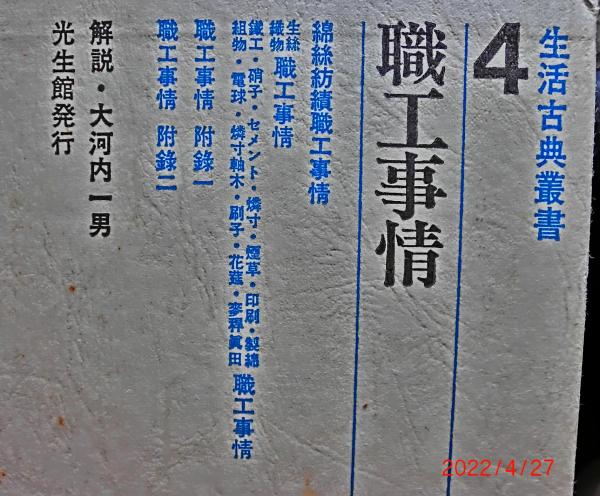 生活古典叢書
4
職工事情
綿絲紡績職工事情
生絲
織物
職工事情
鐵工・硝子・セメント・燐寸・煙草・印刷・製綿
組物・電球・燐寸軸木・刷子・花莚・麥稈眞田
職工事情
職工事情 附錄一
職工事情 附錄二
解説・大河内一男
光生館発行
2022/4/27